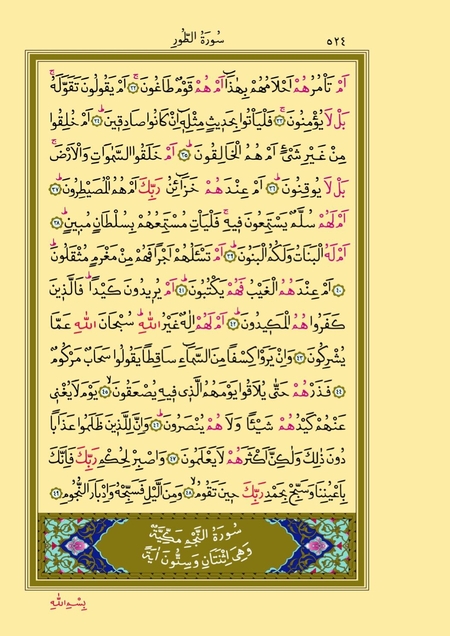 سُورَةُ الطُّورِ ٥٢٤
اَمْ تَأْمُرُهُمْ اَحْلَامُهُمْ بِهٰذَٓا اَمْ هُمْ قَوْمٌ طَاغُونَۚ ﴿٣٢﴾ اَمْ يَقُولُونَ تَقَوَّلَهُۚ
بَلْ لَا يُؤْمِنُونَۚ ﴿٣٣﴾ فَلْيَأْتُوا بِحَدِيثٍ مِثْلِهٖٓ اِنْ كَانُوا صَادِقِينَۜ ﴿٣٤﴾ اَمْ خُلِقُوا
مِنْ غَيْرِ شَيْءٍ اَمْ هُمُ الْخَالِقُونَۜ ﴿٣٥﴾ اَمْ خَلَقُوا السَّمٰوَاتِ وَالْاَرْضَۚ
بَلْ لَا يُوقِنُونَۜ ﴿٣٦﴾ اَمْ عِنْدَهُمْ خَزَٓائِنُ رَبِّكَ اَمْ هُمُ الْمُصَيْطِرُونَۜ ﴿٣٧﴾
اَمْ لَهُمْ سُلَّمٌ يَسْتَمِعُونَ فِيهِۚ فَلْيَأْتِ مُسْتَمِعُهُمْ بِسُلْطَانٍ مُبِينٍۜ ﴿٣٨﴾
اَمْ لَهُ الْبَنَاتُ وَلَكُمُ الْبَنُونَۜ ﴿٣٩﴾ اَمْ تَسْـَٔلُهُمْ اَجْرًا فَهُمْ مِنْ مَغْرَمٍ مُثْقَلُونَۜ
﴿٤٠﴾ اَمْ عِنْدَهُمُ الْغَيْبُ فَهُمْ يَكْتُبُونَۜ ﴿٤١﴾ اَمْ يُرِيدُونَ كَيْدًاۜ فَالَّذِينَ
كَفَرُوا هُمُ الْمَكِيدُونَۜ ﴿٤٢﴾ اَمْ لَهُمْ اِلٰهٌ غَيْرُ اللّٰهِۜ سُبْحَانَ اللّٰهِ عَمَّا
يُشْرِكُونَ ﴿٤٣﴾ وَاِنْ يَرَوْا كِسْفًا مِنَ السَّمَٓاءِ سَاقِطًا يَقُولُوا سَحَابٌ مَرْكُومٌ
﴿٤٤﴾ فَذَرْهُمْ حَتّٰى يُلَاقُوا يَوْمَهُمُ الَّذِي فِيهِ يُصْعَقُونَۙ ﴿٤٥﴾ يَوْمَ لَا يُغْنِي
عَنْهُمْ كَيْدُهُمْ شَيْـًٔا وَلَا هُمْ يُنْصَرُونَۜ ﴿٤٦﴾ وَاِنَّ لِلَّذِينَ ظَلَمُوا عَذَابًا
دُونَ ذٰلِكَ وَلٰكِنَّ اَكْثَرَهُمْ لَا يَعْلَمُونَ ﴿٤٧﴾ وَاصْبِرْ لِحُكْمِ رَبِّكَ فَاِنَّكَ
بِاَعْيُنِنَا وَسَبِّحْ بِحَمْدِ رَبِّكَ حِينَ تَقُومُۙ ﴿٤٨﴾ وَمِنَ الَّيْلِ فَسَبِّحْهُ وَاِدْبَارَ النُّجُومِ ﴿٤٩﴾
سُورَةُ النَّجْمِ مَكِّيَّةٌ
وَهِيَ اِثْنَتَانِ وَسِتُّونَ اٰيَةً
بِسْمِ اللّٰهِ